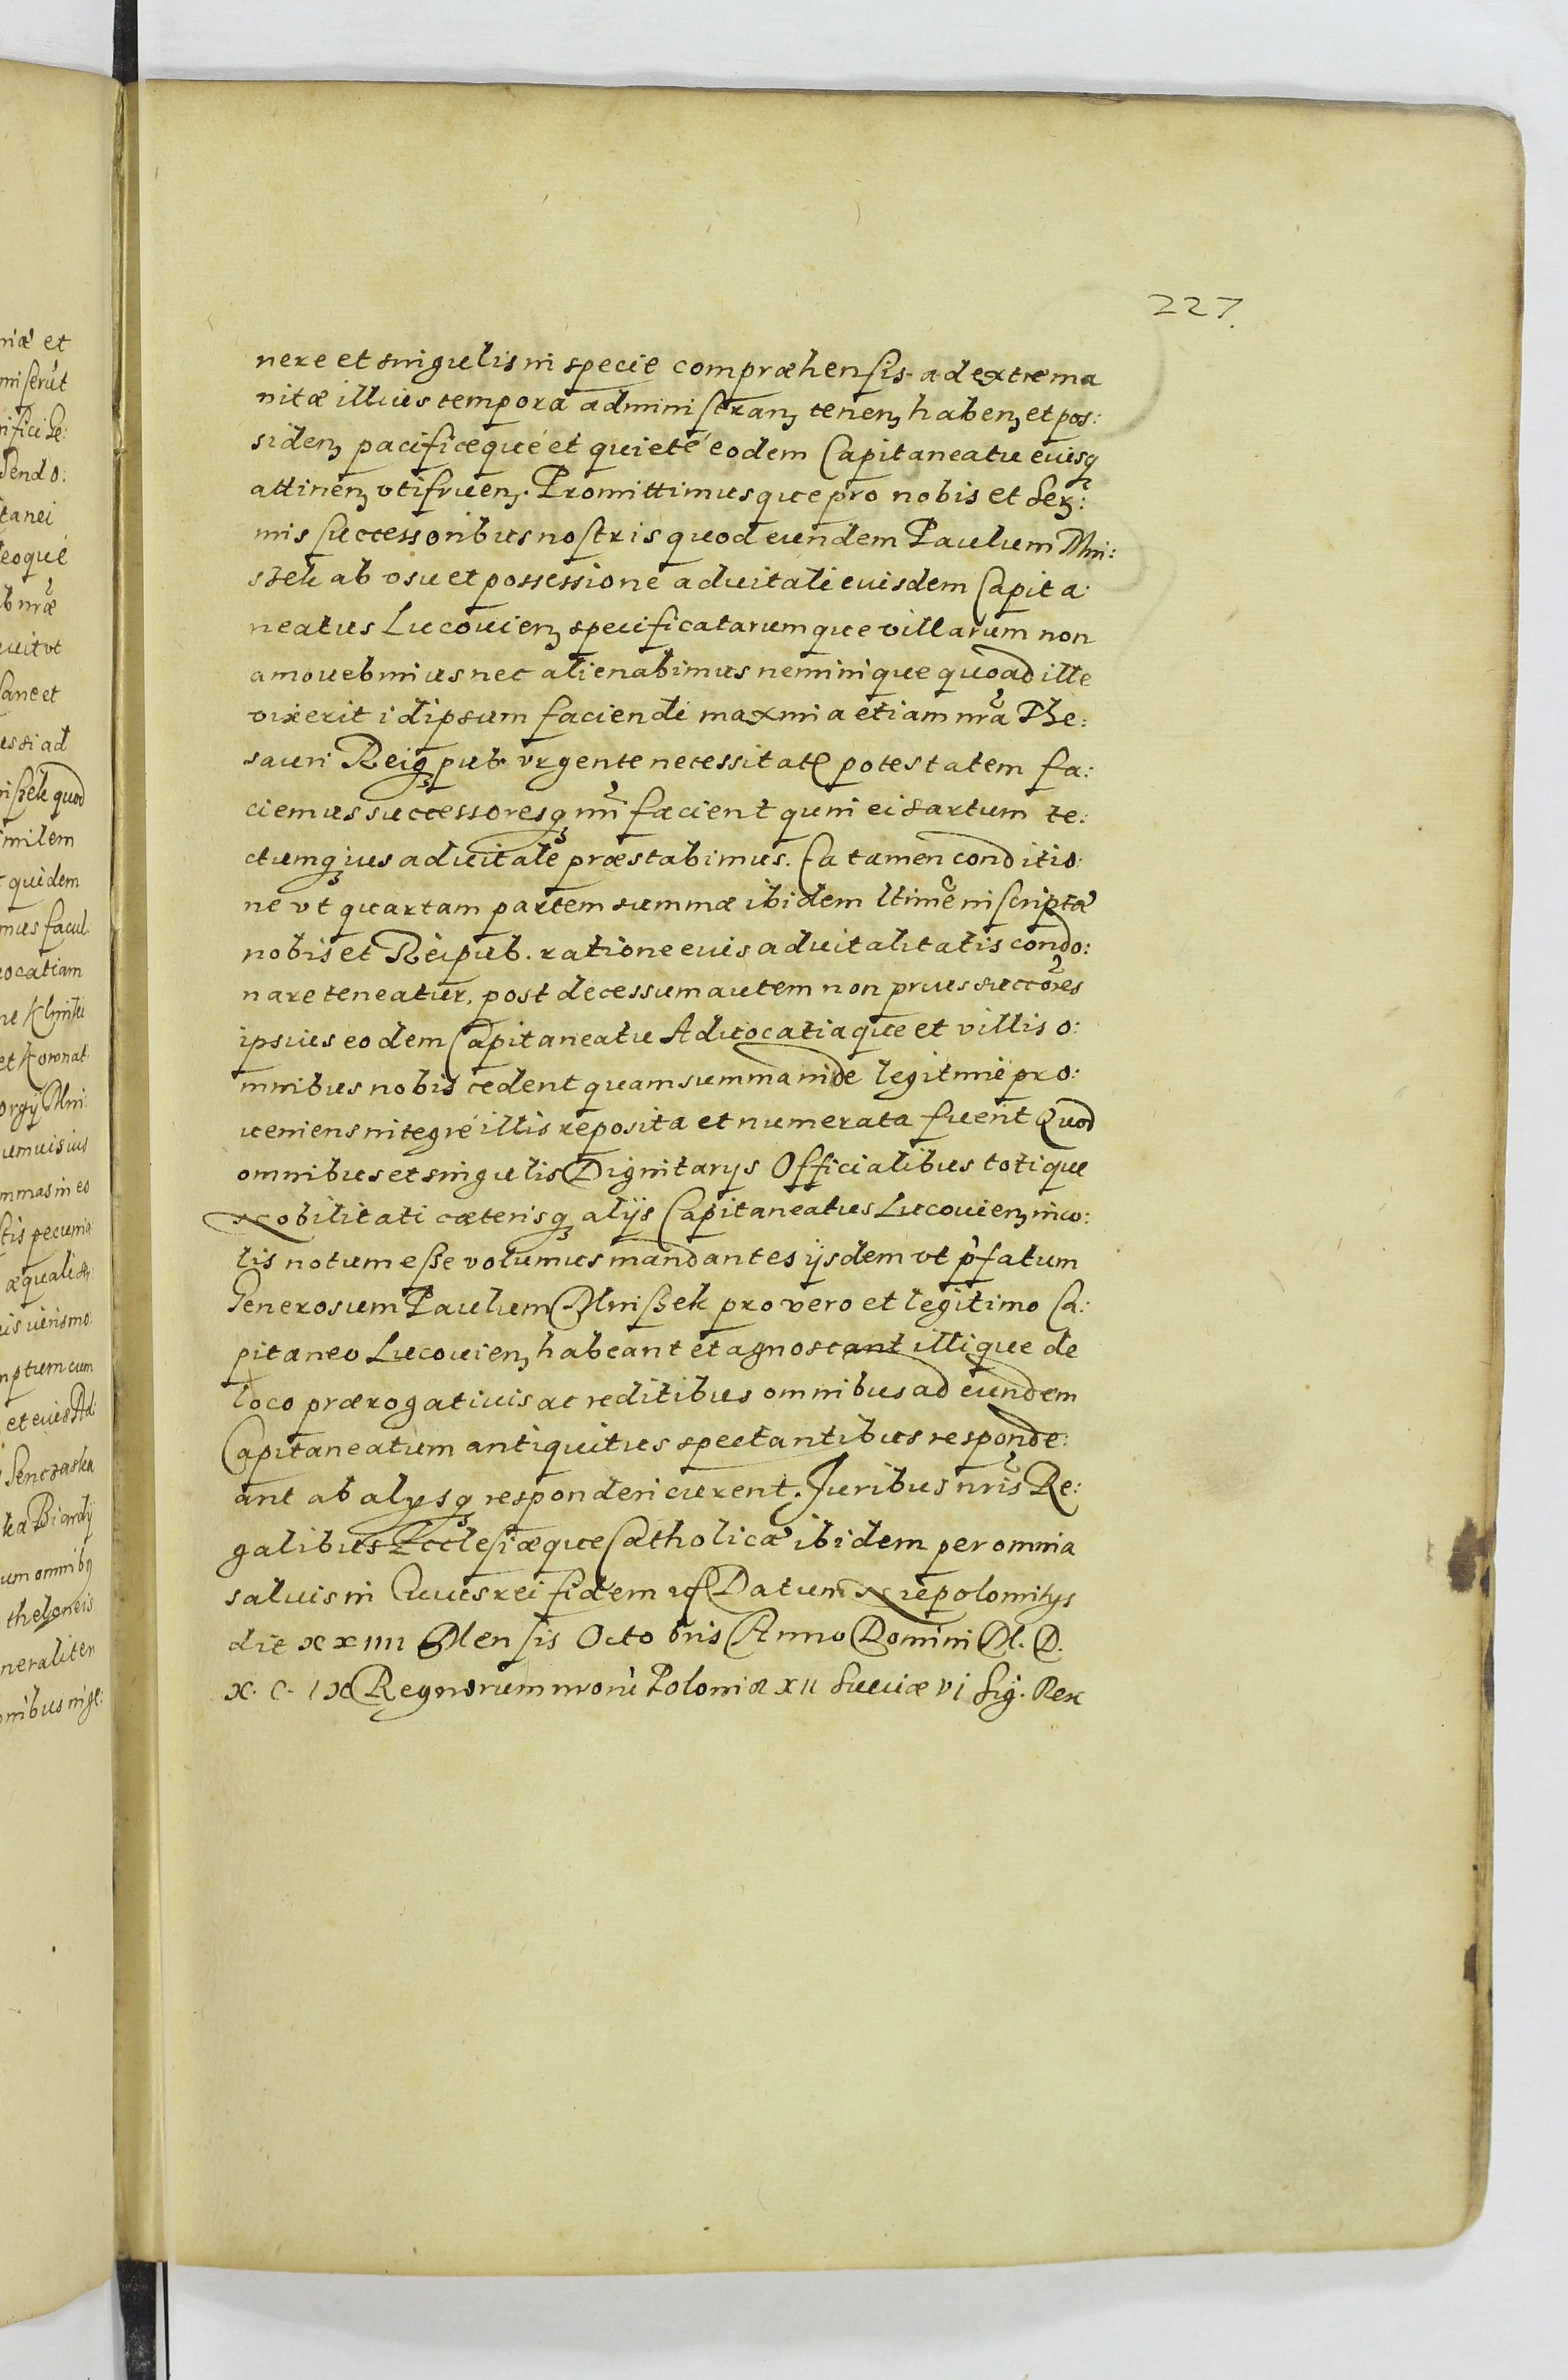 227.
nere et singulis in specie compræhensis ad extrema
vitæ illius tempora administranꝫ tenenꝫ habenꝫ et pos:
sidenꝫ pacificequé et quieté eodem Capitaneatu eiusqꝫ
attinenꝫ vtifruenꝫ. Promittimusque pro nobis et Serꝫ:
mis successoribus nostris quod eundem Paulum Mni:
szek ab vsu et possessione aduitali eiusdem Capita:
neatus Lucouienꝫ specificatarumque villarum non
amouebimus nec alienabimus neminique quoad ille
vixerit idipsum faciendi maxima etiam nrã The:
sauri Reiqꝫ pub. vrgente necessitate potestatem fa:
ciemus successoresqꝫ nri facient quin ei sartum te:
ctumqꝫ ius aduitale præstabimus. Ea tamen conditio:
ne vt quartam partem summæ ibidem ltime inscriptæ
nobis et Reipub. ratione eius aduitalitatis condo:
nare teneatur, post decessum autem non prius succores
ipsius eodem Capitaneatu Aduocatiaque et villis o:
mnibus nobis cedent quam summa inde legitimè pro:
ueniens integrè illis reposita et numerata fuerit Quod
omnibus et singulis Dignitarys Officialibus totique
Nobilitati cæterisqꝫ alijs Capitaneatus Lucouienꝫ inco:
lis notum esse volumus mandantes ijsdem vt p̃fatum
Generosum Paulum Mniszek pro vero et legitimo Ca:
pitaneo Lucouienꝫ habeant et agnoscant illique de
loco prærogatiuis ac reditibus omnibus ad eundem
Capitaneatum antiquitus spectantibus responde:
ant ab alysqꝫ responderi curent. Juribus nris Re:
galibus Ecclesiæque Catholicæ ibidem per omnia
saluis in Cuius rei fidem Datum Niepolomitys
die XXIIII Mensis Octobris Anno Domini M. D.
X. C. IX Regnorum nrorũ Poloniæ XII Sueciæ VI Sig. Rex